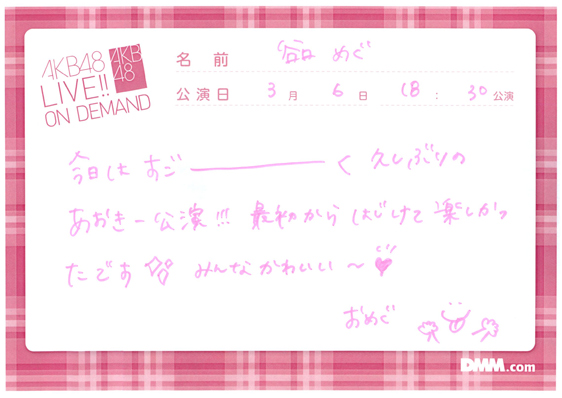 AKB48
LIVE!!
ON DEMAND
AKB
48
名前 谷口 めぐ
公演日 3月 6日 18:30公演
今日は すご────く 久しぶりの
あおきー公演!!! 最初から はじけて 楽しかっ
たです みんなかわいい〜
おめぐ
DMM.com